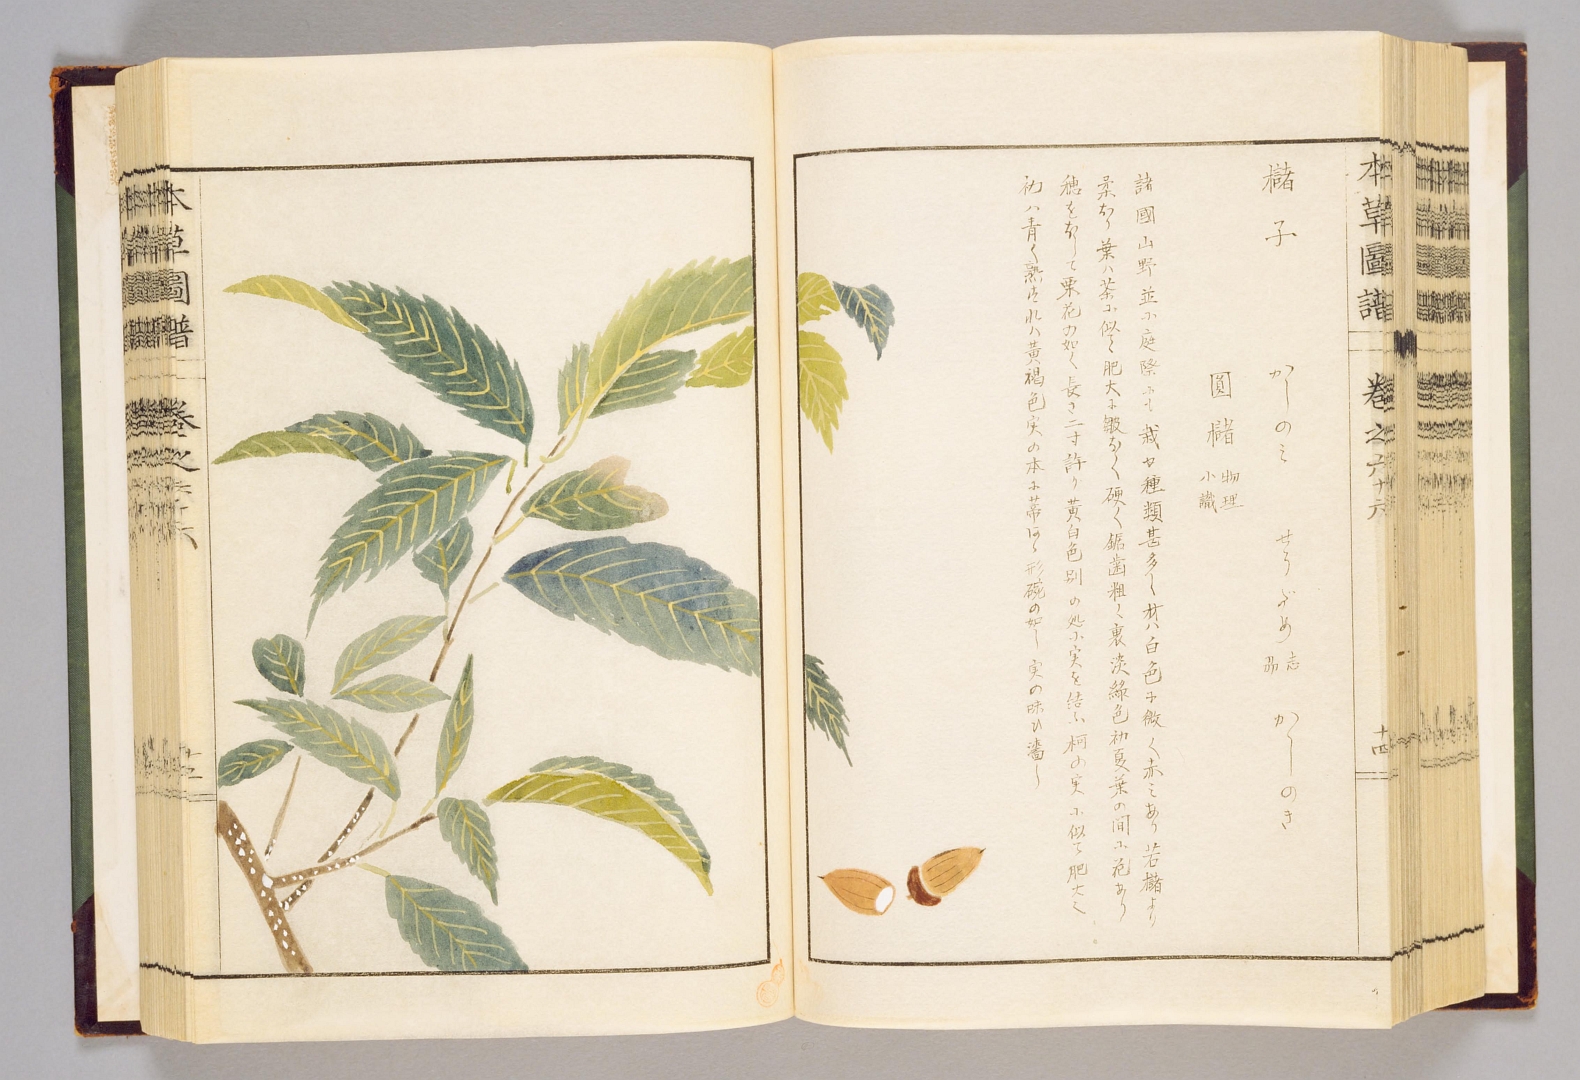 本草圖譜 巻之六十六 十四
櫧子 かしのミ せうざめ 志州 かしのき
圓櫧 物理小識
諸國山野並に庭際にも栽ゆ種類甚多く材ハ白色に微く赤ミあり若櫧より
葉ハ茶に似て肥大に皺なく硬く鋸歯粗く裏淡綠色初夏葉の間に花あり
穗をなして栗花の如く長さ二寸許り黄白色別の処に実を結ふ柯の実に似て肥大く
初ハ青く熟すれハ黄褐色実の本に蒂 形碗の如し実の味ひ濇し
本草圖譜 巻之六十六